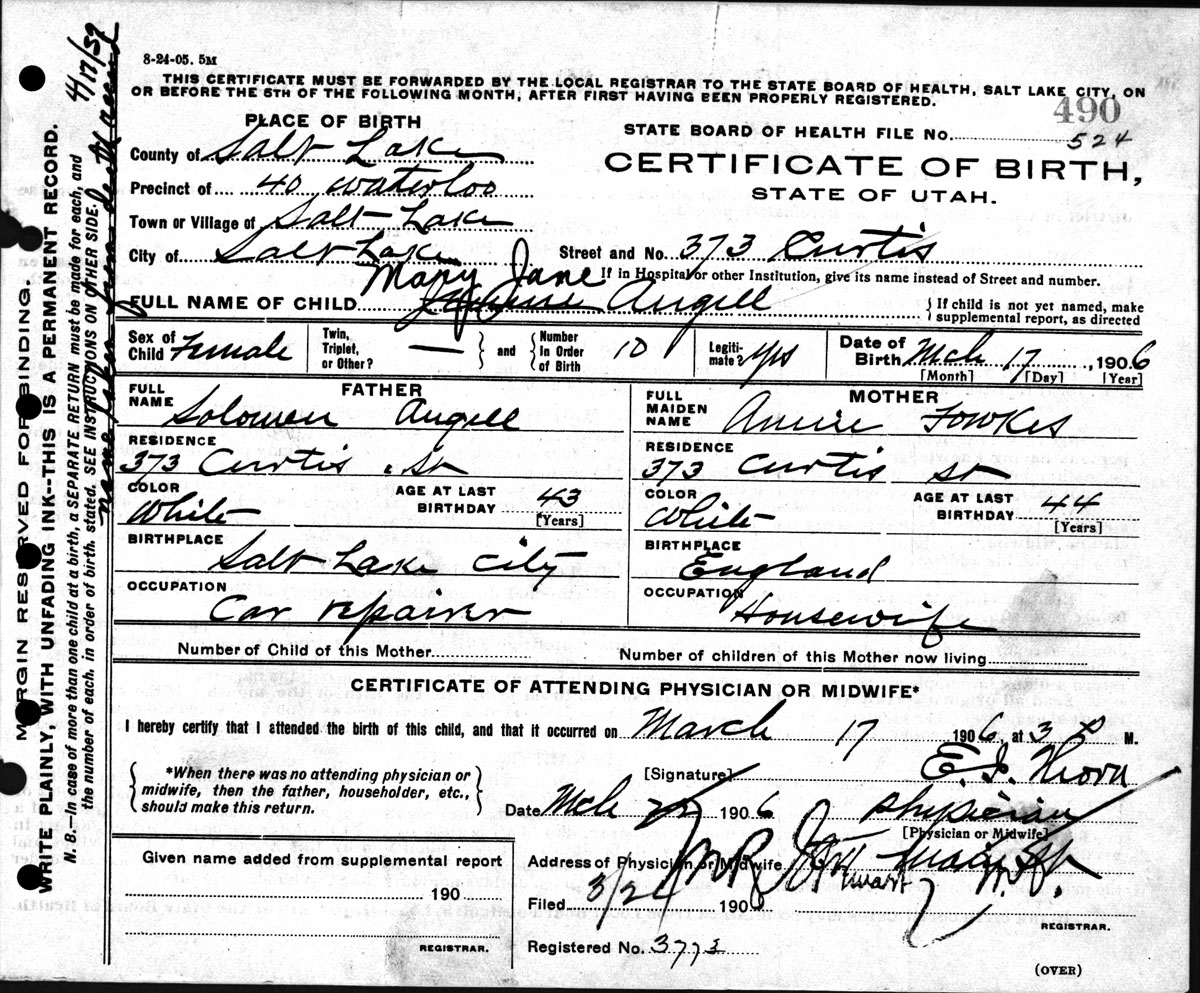 8-24-05. 5M
THIS CERTIFICATE MUST BE FORWARDED BY THE LOCAL REGISTRAR TO THE STATE BOARD OF HEALTH, SALT LAKE CITY, ON
OR BEFORE THE 5TH OF THE FOLLOWING MONTH, AFTER FIRST HAVING BEEN PROPERLY REGISTERED.
490
PLACE OF BIRTH
STATE BOARD OF HEALTH FILE No. 524
County of Salt Lake
CERTIFICATE OF BIRTH,
Precinct of 40 Waterloo
STATE OF UTAH.
Town or Village of Salt Lake
City of Salt Lake Street and No. 373 Curtis
Mary Jane
If in Hospital or other Institution, give its name instead of Street and number.
FULL NAME OF CHILD Angell
If child is not yet named, make
supplemental report, as directed
Sex of Child Female
Twin, Triplet, or Other? —
and
Number In Order of Birth 10
Legiti-mate? yes
Date of Birth Mch 17, 1906
[Month] [Day] [Year]
FATHER
FULL NAME Solomen Angell
MOTHER
FULL MAIDEN NAME Annie Fowkes
RESIDENCE
373 Curtis St
RESIDENCE
373 Curtis St
COLOR
White
AGE AT LAST BIRTHDAY 43
[Years]
COLOR
White
AGE AT LAST BIRTHDAY 44
[Years]
BIRTHPLACE
Salt Lake City
BIRTHPLACE
England
OCCUPATION
Car repairer
OCCUPATION
Housewife
Number of Child of this Mother
Number of children of this Mother now living
CERTIFICATE OF ATTENDING PHYSICIAN OR MIDWIFE*
I hereby certify that I attended the birth of this child, and that it occurred on March 17 1906, at 3 M.
*When there was no attending physician or
midwife, then the father, householder, etc.,
should make this return.
[Signature] E.
Date Mch 1906 physician
[Physician or Midwife]
Given name added from supplemental report
190
REGISTRAR.
Address of Physician or Midwife
Filed 190
REGISTRAR.
Registered No. 3773
(OVER)
MARGIN RESERVED FOR BINDING.
WRITE PLAINLY, WITH UNFADING INK--THIS IS A PERMANENT RECORD.
N. B.—In case of more than one child at a birth, a SEPARATE RETURN must be made for each, and
the number of each, in order of birth, stated. SEE INSTRUCTIONS ON OTHER SIDE.
name taken from death record 4/17/39